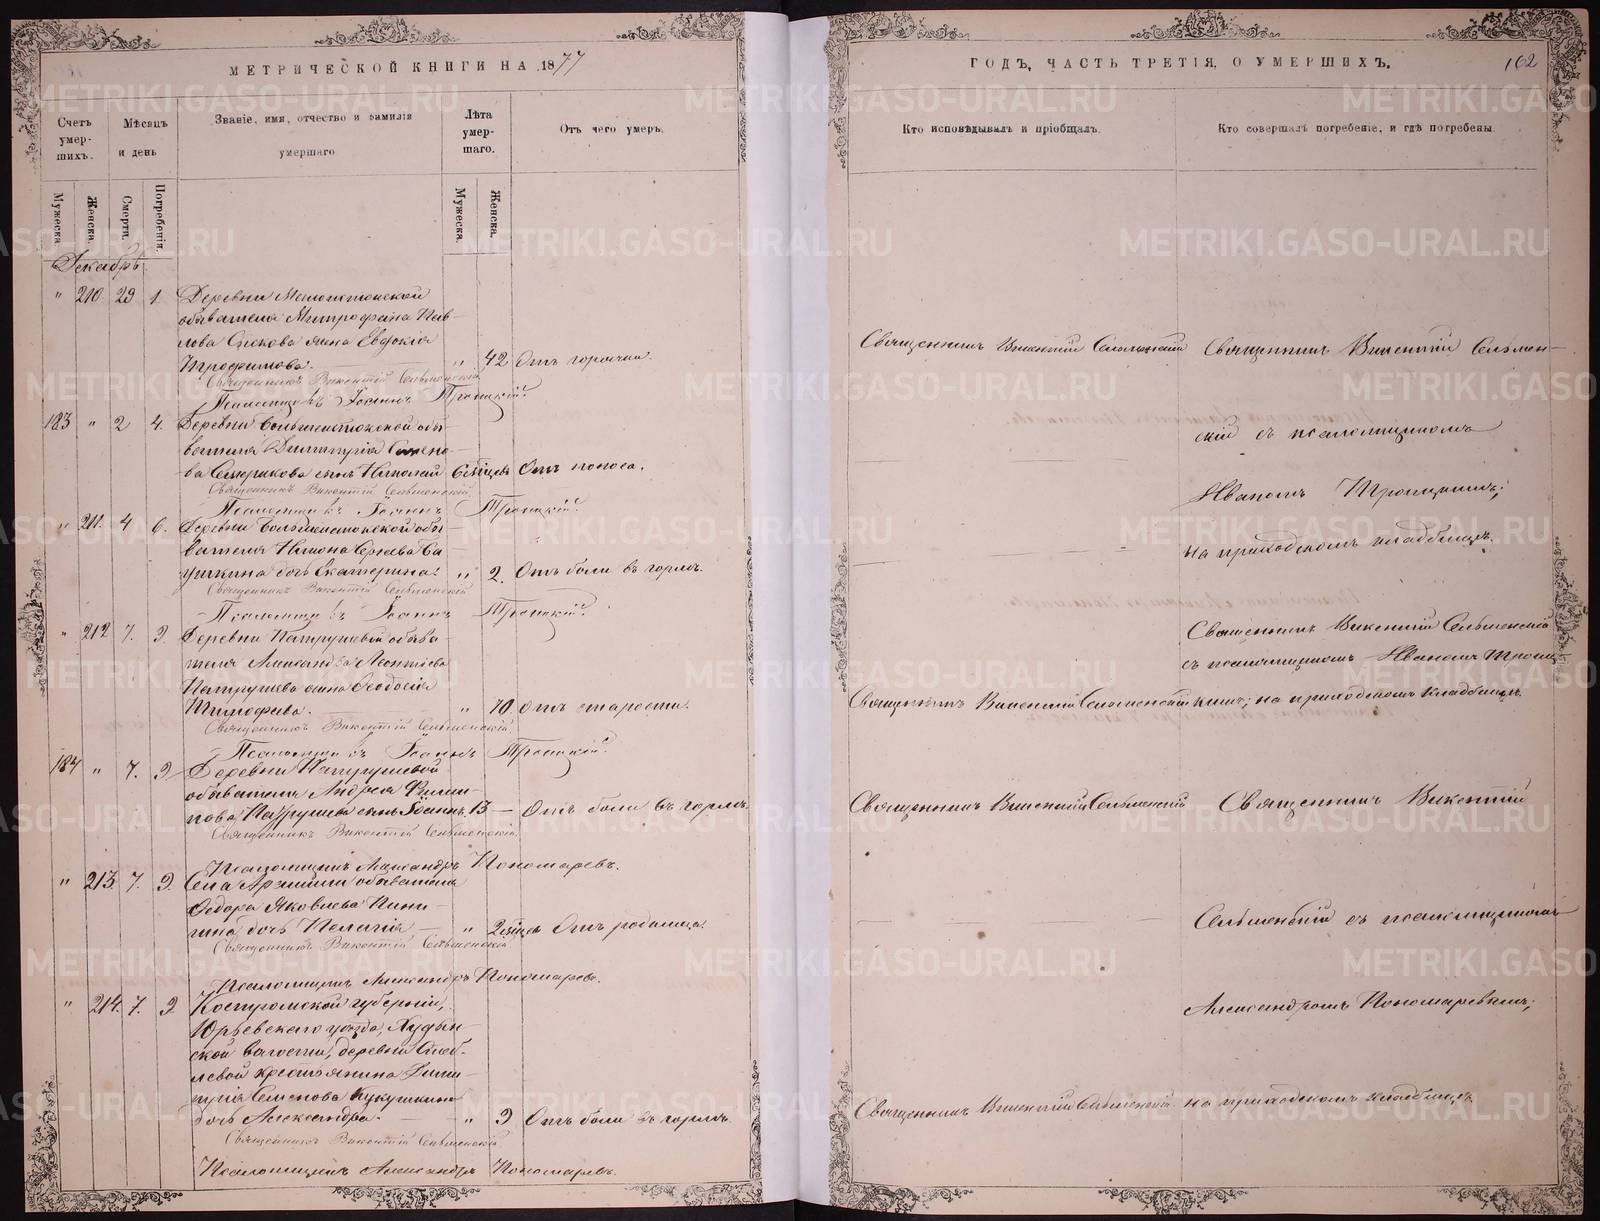 МЕТРИЧЕСКОЙ КНИГИ НА 1877
Счетъ умер-шихъ.
Мѣсяцъ и день
Званіе, имя, отчество и фамилія умершаго
Лѣта умер-шаго.
Отъ чего умеръ.
Мужеска.
Женска.
Смерти.
Погребенія.
Мужеска.
Женска.
Декабрь
" 210 29 1. Деревни
обывателя Митрофана Пав-
лова жена Евдокія
Трофимова. " 42 Отъ горячки.
Священникъ Викентій Сельменскій
Псаломщикъ Іоаннъ Троицкій.
183 " 2 4. Деревни обы-
вателя Димитрія Семено-
ва сынъ Николай 6 мѣсяц. Отъ поноса.
Священникъ Викентій Сельменскій
Псаломщикъ Іоаннъ Троицкій.
" 211. 4 6. Деревни обы-
вателя
дочь Екатерина. " 2. Отъ боли въ горлѣ.
Священникъ Викентій Сельменскій
Псаломщикъ Іоаннъ Троицкій.
" 212 7. 9. Деревни Патрушевой обыва-
теля Александра Леонтьева
Патрушева жена Ѳеодосія
Тимофеева. " 70. Отъ старости.
Священникъ Викентій Сельменскій
Псаломщикъ Іоаннъ Троицкій.
184 " 7. 9 Деревни Патрушевой
обывателя Андрея Филип-
пова Патрушева сынъ Іоаннъ. 13 — Отъ боли въ горлѣ
Священникъ Викентій Сельменскій.
Псаломщикъ Александръ Пономаревъ.
" 213. 7. 9. Села обывателя
Ѳедора Яковлева Пини-
гина дочь Пелагія " 2 мѣсяц. Отъ родимца.
Священникъ Викентій Сельменскій
Псаломщикъ Александръ Пономаревъ.
" 214. 7. 9. Костромской губерніи,
Юрьевскаго уѣзда,
ской волости, деревни
левой крестьянина Дими-
трія Семенова Кукушкина
дочь Александра. " 9 Отъ боли въ горлѣ.
Священникъ Викентій Сельменскій
Псаломщикъ Александръ Пономаревъ.
ГОДЪ, ЧАСТЬ ТРЕТІЯ, О УМЕРШИХЪ.
162
Кто исповѣдывалъ и пріобщалъ.
Кто совершалъ погребеніе, и гдѣ погребены.
Священникъ Викентій Сельменскій Священникъ Викентій Сельмен-
скій съ псаломщикомъ
Иваномъ Троицкимъ;
на приходскомъ кладбищѣ.
Священникъ Викентій Сельменскій
съ псаломщикомъ Иваномъ Троиц-
Священникъ Викентій Сельменскій кимъ; на приходскомъ кладбищѣ.
Священникъ Викентій Сельменскій Священникъ Викентій
Сельменскій съ псаломщикомъ
Александромъ Пономаревымъ;
Священникъ Викентій Сельменскій на приходскомъ кладбищѣ.
METRIKI.GASO-URAL.RU